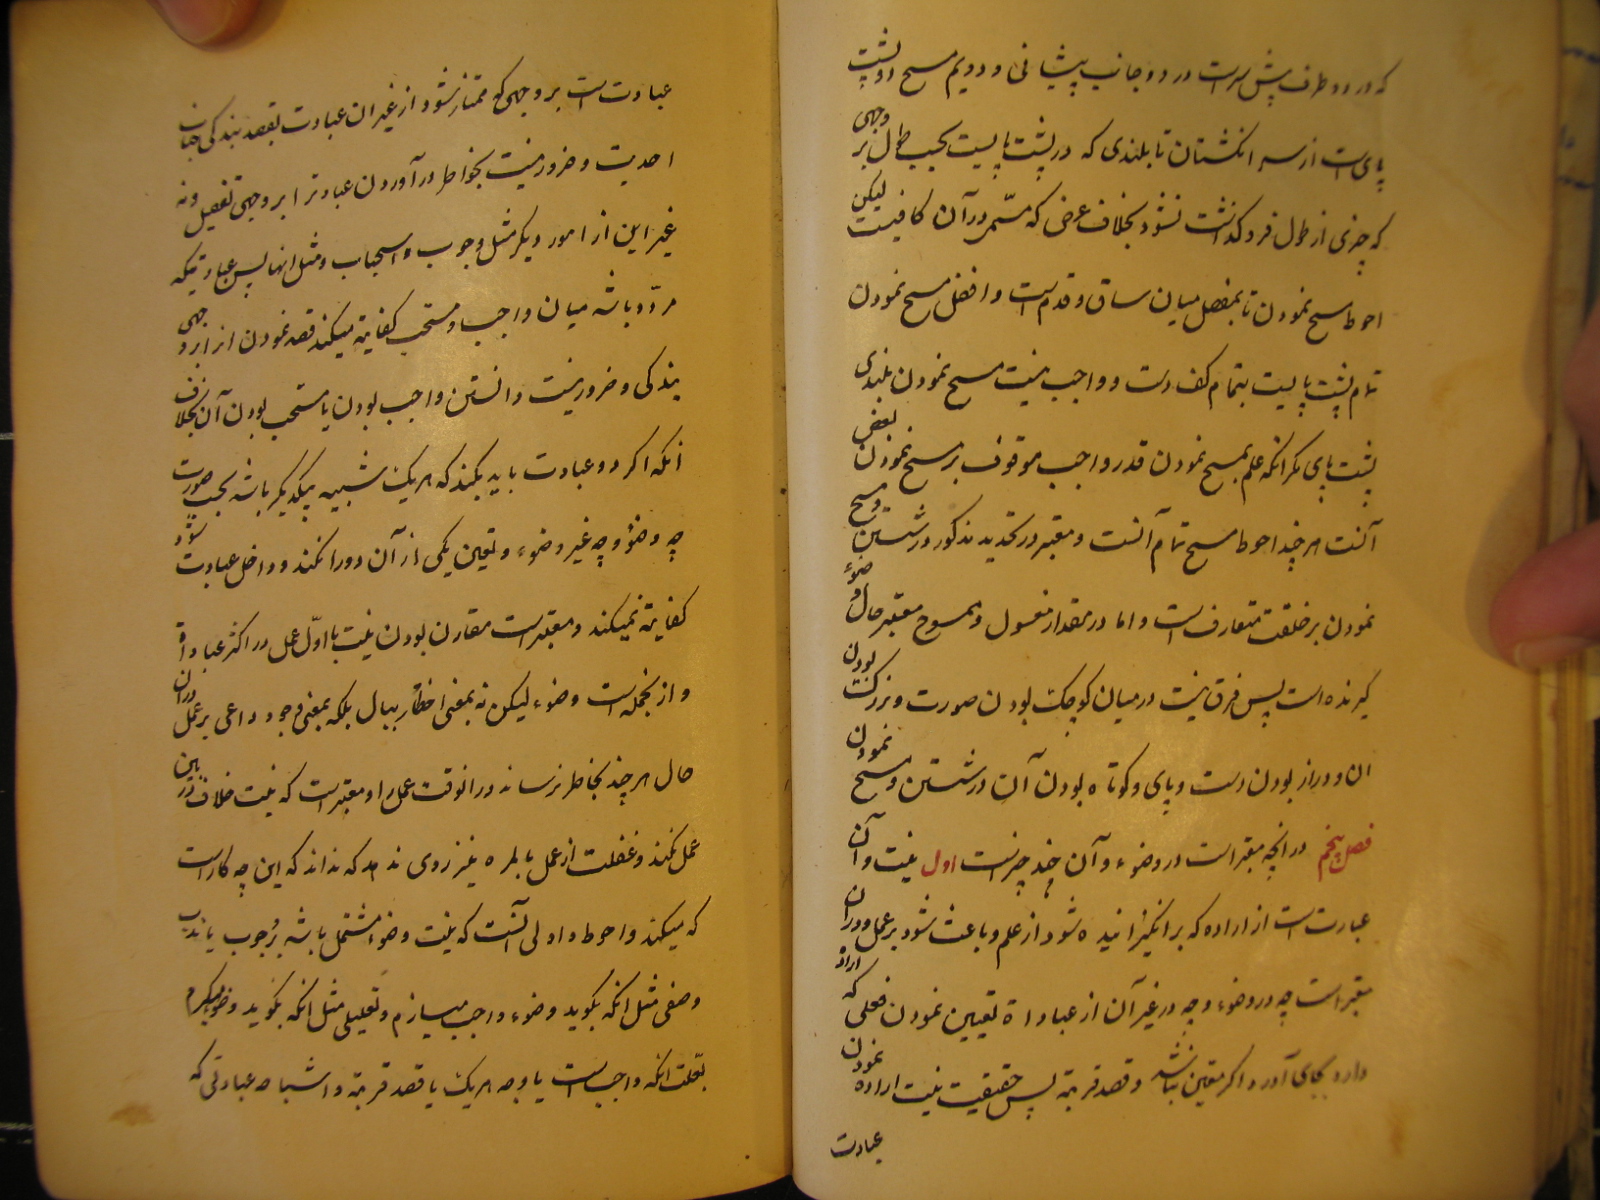 که در دو طرف پیش سر است در دو جانب پیشانی و دویم مسح دو پشت
پای است از سر انکشتان تا بلندی که در پشت پا پست بحسب طول بر وجهی
که چیزی از طول فرو کذاشت نشود بخلاف عرض که مسمّی در آن کافیست لیکن
احوط مسح نمودن تا بمفصل میان ساق و قدم است و افضل مسح نمودن
تمام پشت پا پست بتمام کف دست و واجب نیست مسح نمودن بلندی
پشت پای مکر انکه علم بمسح نمودن قدر واجب موقوف بر مسح نمودن بعض
آنست هر چند احوط مسح تمام آنست و معتبر در تحدید مذکور در شستن و مسح
نمودن بر خلقت متعارف است و اما در مقدار مغسول و ممسوح معتبر حال وضوء
کیرنده است پس فرق نیست در میان کوچک بودن صورت و بزرک بودن
ان و دراز بودن دست و پای و کوتاه بودن آن در شستن و مسح نمودن
فصل پنجم در انچه معتبر است در وضوء و آن چند چیز است اول نیت و آن
عبارت است از اراده که برانکیزانیده شود از علم و باعث شود بر عمل و در ان
معتبر است چه در وضوء و چه در غیر آن از عباداة تعیین نمودن فعلی که اراده
دارد بجای آورد اکر معین نباشد و قصد قربة پس حقیقت نیت اراده نمودن
عبادت
عبادت است بر وجهی که ممتاز شود از غیر ان عبادت بقصد بندکی جناب
احدیت و ضرور نیست بخواطر در آوردن عبادترا بر وجهی تفصیل و نه
غیر این از امور دیکر مثل وجوب و استحباب و مثل انها پس عبادتیکه
مردّد باشد میان واجب و مستحب کفایة میکند قصد نمودن از ابر وجهی
بندکی و ضرور نیست دانستن واجب بودن یا مستحب بودن آن بخلاف
انکه اکر دو عبادت باید بکند که هر یک شبیه بیکدیکر باشد بحسب صورت
چه وضوء و چه غیر وضوء و تعیین یکی از آن دو را نکند و داخل عبادت شود
کفایة نمیکند و معتبر است مقارن بودن نیت با اوّل عمل در اکثر عباداة
و از انجمله است وضوء لیکن نه بمعنی اخطار ببال بلکه بمعنی وجود داعی بر عمل در ان
حال هر چند بخاطر نرساند در انوقت عمل را و معتبر است که نیت خلاف در بین
عمل نکند و غفلت از عمل بالمره نیز روی ندهد که نداند که این چه کار است
که میکند و احوط و اولی آنست که نیت وضوء مشتمل باشد بر وجوب یا ندب
وصفی مثل انکه بکوید وضوء واجب میسازم و تعلیلی مثل انکه بکوید وضو میکیرم
بعلت انکه واجب است یا وجه هر یک یا قصد قربة و استباحه عبادتی که